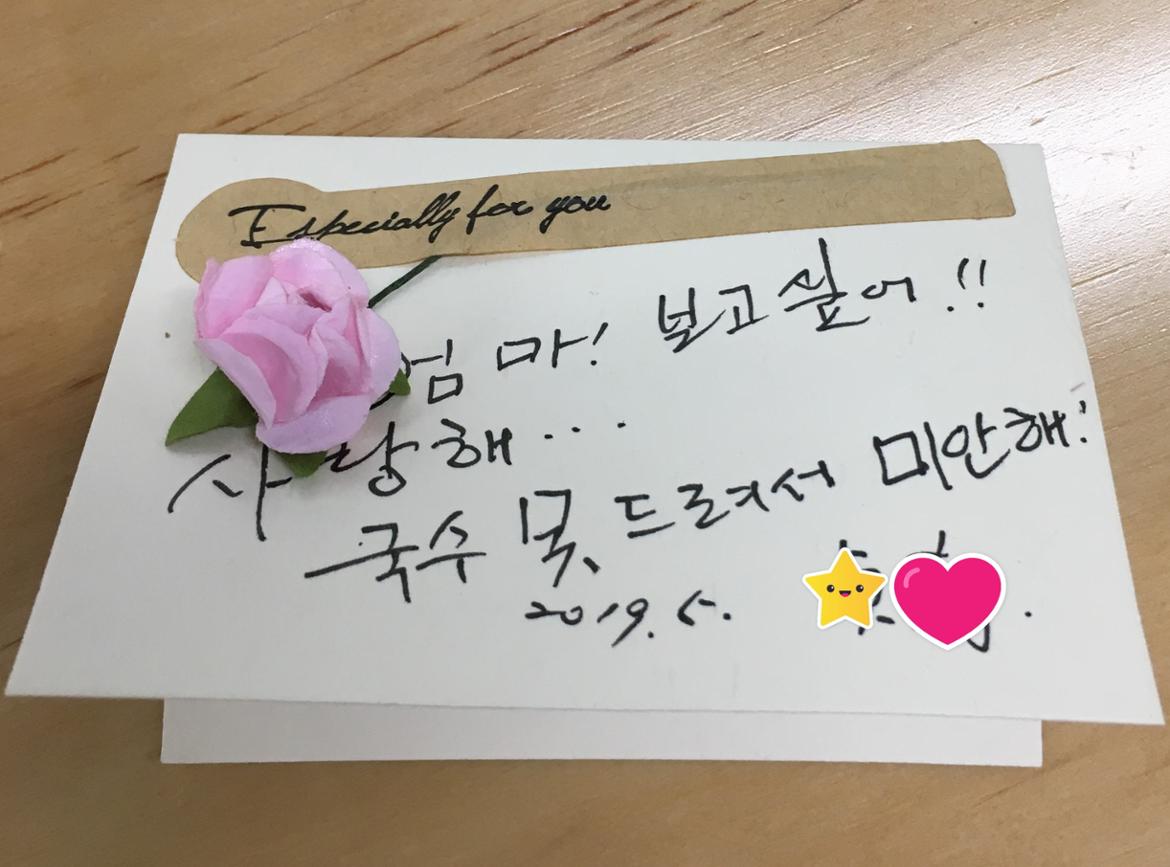 Especially for you
엄마! 보고싶어.!!
사랑해...
국수 못 드려서 미안해!
2019. 5.